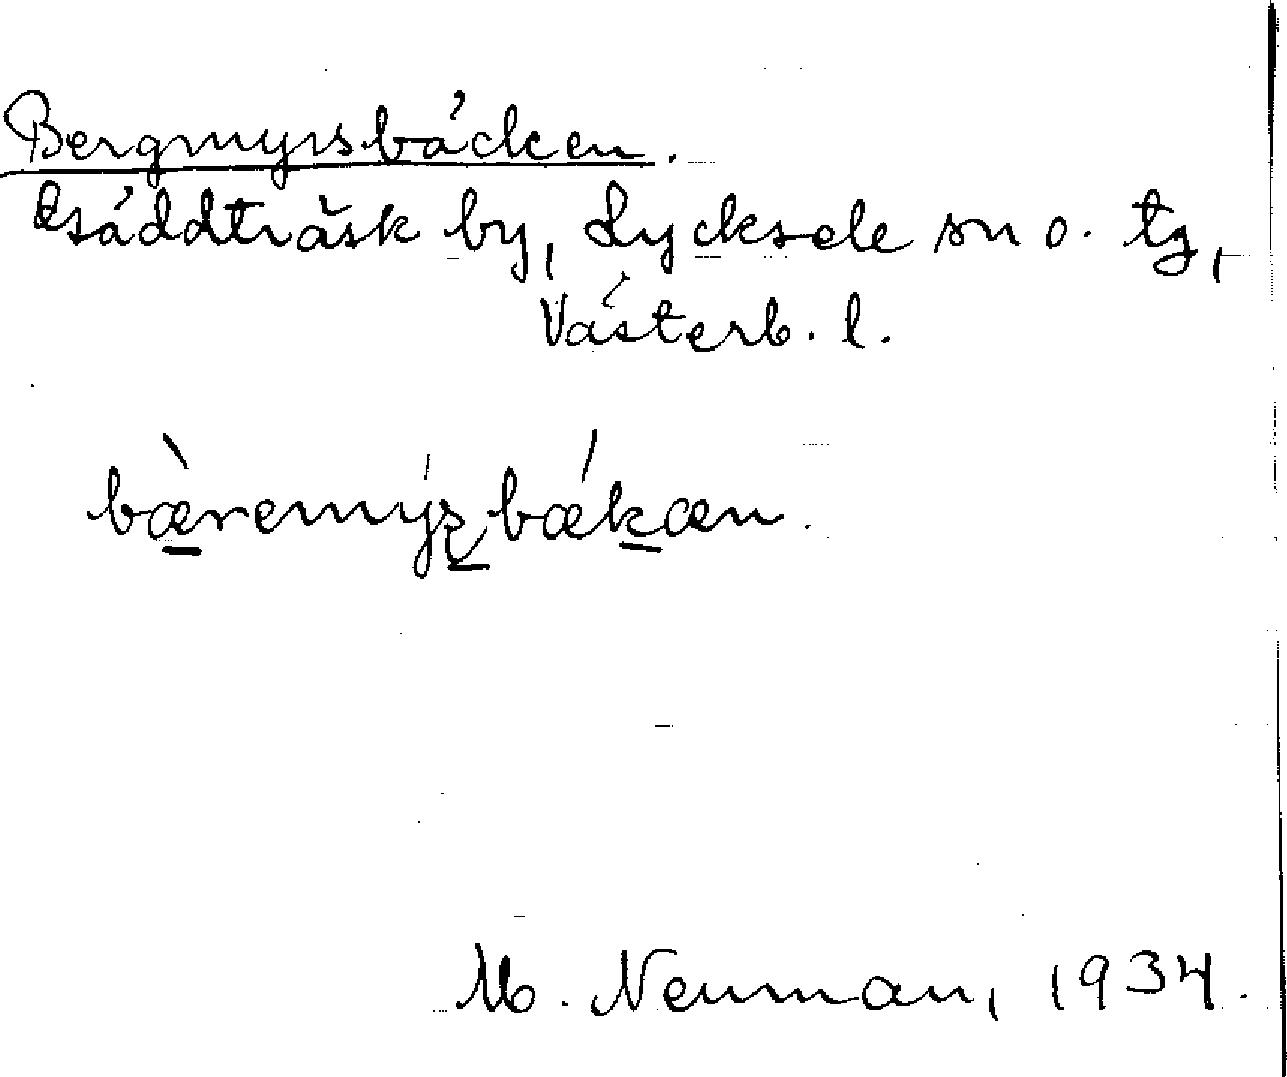 Bergmyrsbäcken.
Bäddträsk by, Lycksele sn o. tg,
Västerb. l.
bæ̀remýʂbǽkæn.
M. Neuman, 1934.